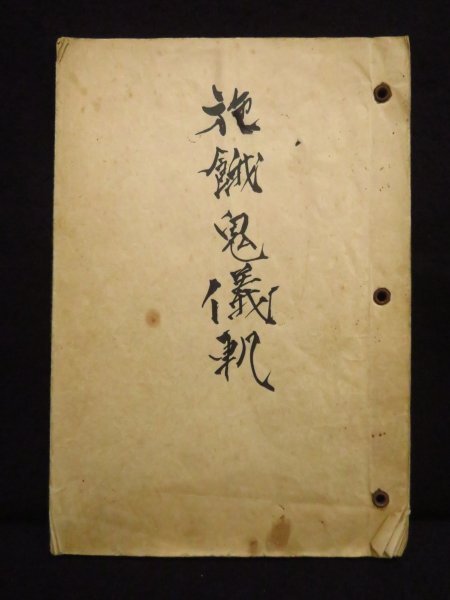 施餓鬼儀軌